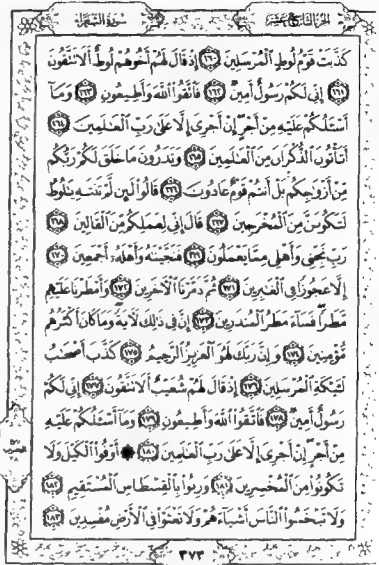 الجزء التاسع عشر
سورة الشعراء
كَذَّبَتْ قَوْمُ لُوطٍ الْمُرْسَلِينَ ١٦٠ إِذْ قَالَ لَهُمْ أَخُوهُمْ لُوطٌ أَلَا تَتَّقُونَ
١٦١ إِنِّي لَكُمْ رَسُولٌ أَمِينٌ ١٦٢ فَاتَّقُوا اللَّهَ وَأَطِيعُونِ ١٦٣ وَمَا
أَسْـَٔلُكُمْ عَلَيْهِ مِنْ أَجْرٍ إِنْ أَجْرِيَ إِلَّا عَلَىٰ رَبِّ الْعَـٰلَمِينَ ١٦٤
أَتَأْتُونَ الذُّكْرَانَ مِنَ الْعَـٰلَمِينَ ١٦٥ وَتَذَرُونَ مَا خَلَقَ لَكُمْ رَبُّكُم
مِّنْ أَزْوَٰجِكُم بَلْ أَنتُمْ قَوْمٌ عَادُونَ ١٦٦ قَالُوا لَئِن لَّمْ تَنتَهِ يَـٰلُوطُ
لَتَكُونَنَّ مِنَ الْمُخْرَجِينَ ١٦٧ قَالَ إِنِّي لِعَمَلِكُم مِّنَ الْقَالِينَ ١٦٨
رَبِّ نَجِّنِي وَأَهْلِي مِمَّا يَعْمَلُونَ ١٦٩ فَنَجَّيْنَـٰهُ وَأَهْلَهُ أَجْمَعِينَ ١٧٠
إِلَّا عَجُوزًا فِي الْغَـٰبِرِينَ ١٧١ ثُمَّ دَمَّرْنَا الْـَٔاخَرِينَ ١٧٢ وَأَمْطَرْنَا عَلَيْهِم
مَّطَرًا فَسَاءَ مَطَرُ الْمُنذَرِينَ ١٧٣ إِنَّ فِي ذَٰلِكَ لَـَٔايَةً وَمَا كَانَ أَكْثَرُهُم
مُّؤْمِنِينَ ١٧٤ وَإِنَّ رَبَّكَ لَهُوَ الْعَزِيزُ الرَّحِيمُ ١٧٥ كَذَّبَ أَصْحَـٰبُ
لْـَٔيْكَةِ الْمُرْسَلِينَ ١٧٦ إِذْ قَالَ لَهُمْ شُعَيْبٌ أَلَا تَتَّقُونَ ١٧٧ إِنِّي لَكُمْ
رَسُولٌ أَمِينٌ ١٧٨ فَاتَّقُوا اللَّهَ وَأَطِيعُونِ ١٧٩ وَمَا أَسْـَٔلُكُمْ عَلَيْهِ
مِنْ أَجْرٍ إِنْ أَجْرِيَ إِلَّا عَلَىٰ رَبِّ الْعَـٰلَمِينَ ١٨٠ ۞ أَوْفُوا الْكَيْلَ وَلَا
تَكُونُوا مِنَ الْمُخْسِرِينَ ١٨١ وَزِنُوا بِالْقِسْطَاسِ الْمُسْتَقِيمِ ١٨٢
وَلَا تَبْخَسُوا النَّاسَ أَشْيَاءَهُمْ وَلَا تَعْثَوْا فِي الْأَرْضِ مُفْسِدِينَ ١٨٣
٣٧٣